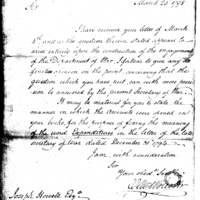 March 20. 1795
Sir
I have received your letter of March
and as the question therein stated appears to
arise entirely upon the construction of the engagements
of the Department of War, I decline to give any
opinion on the point, conceiving that the
question which you have put, can with more precision
be answered by the present Secretary of War.
It may be material for you to state the
manner in which the Accounts were closed on
your books, for the purpose of fixing the meaning
of the word Expenditure in the letter of the late
Secretary of War dated December 31. 1794.
I am, with consideration
Sir
Your obed. Serv.
Joseph Howell Esqr.